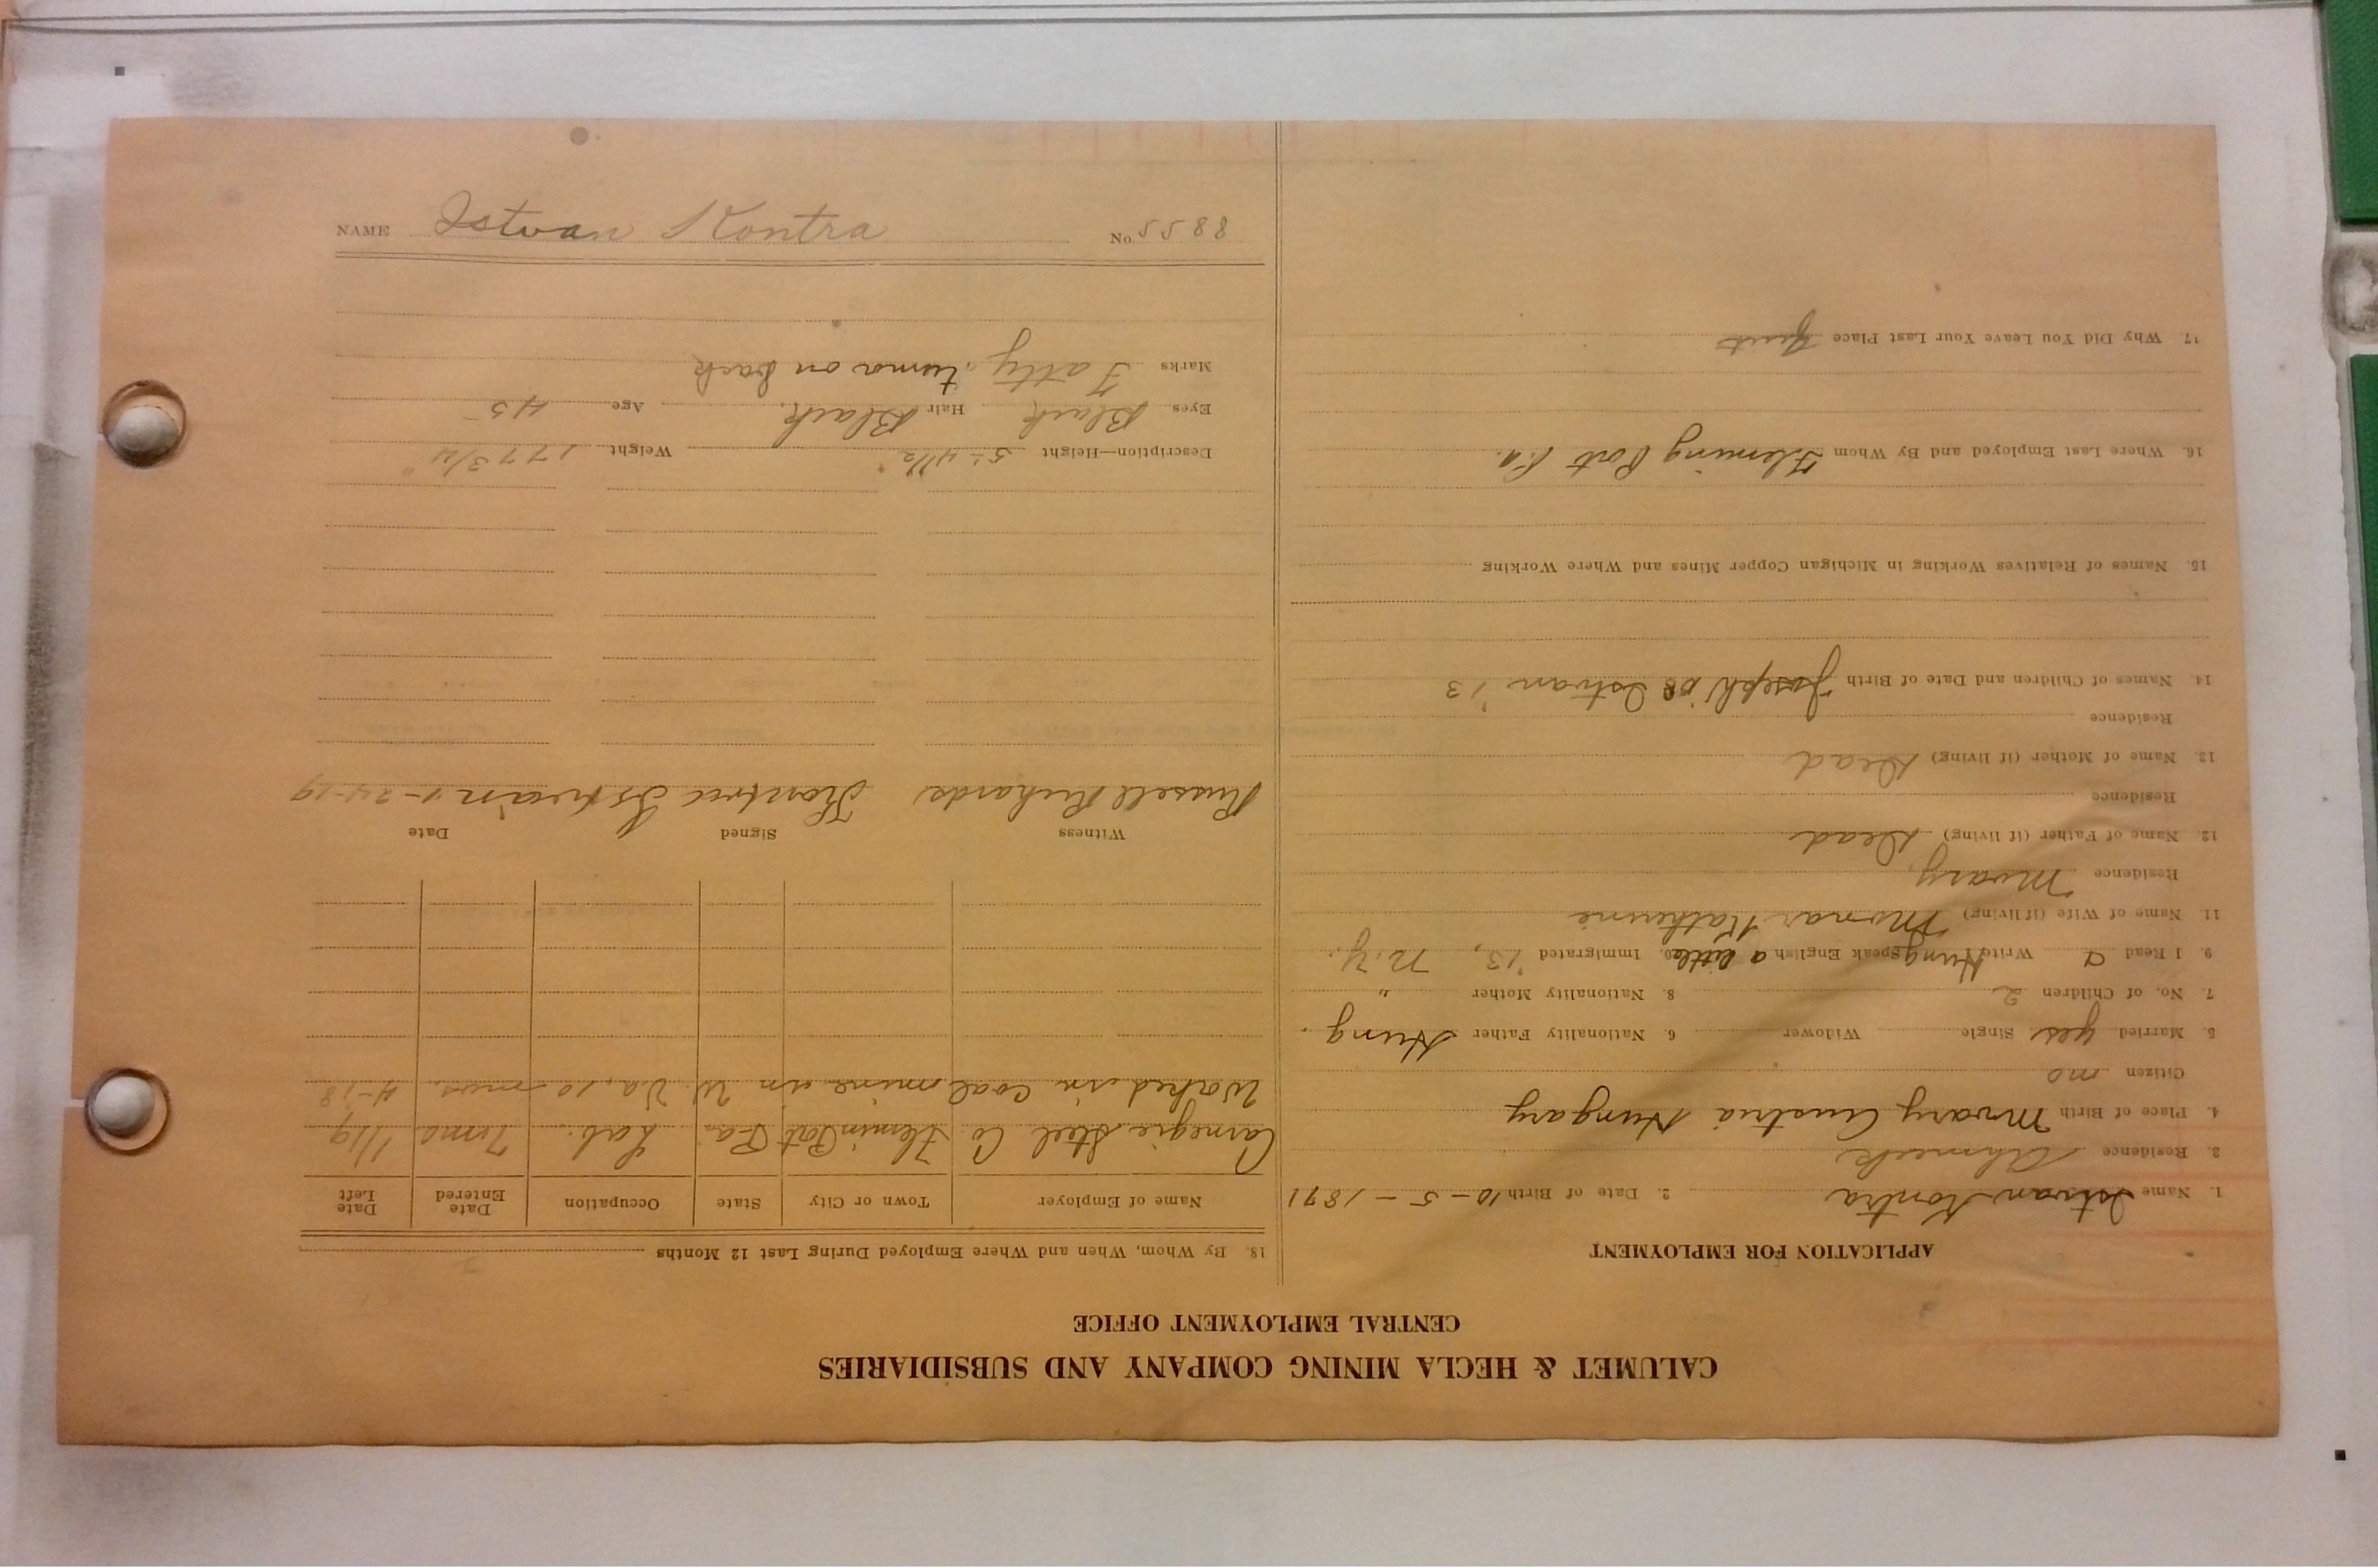 CALUMET & HECLA MINING COMPANY AND SUBSIDIARIES
CENTRAL EMPLOYMENT OFFICE
APPLICATION FOR EMPLOYMENT
1. Name Istvan Kontra 2. Date of Birth 10-5-1871
3. Residence Ahmeek
4. Place of Birth Mvary Austria Hungary
Citizen no
5. Married yes Single Widower 6. Nationality Father Hung.
7. No. of Children 2 8. Nationality Mother "
9. I Read a Write Hung Speak English a little 10. Immigrated '13, N.Y.
11. Name of Wife (if living) Monar Katherine
Residence Mvary,
12. Name of Father (if living) Dead
Residence
13. Name of Mother (if living) Dead
Residence
14. Names of Children and Date of Birth Joseph '08 Istvan '13
15. Names of Relatives Working in Michigan Copper Mines and Where Working
16. Where Last Employed and By Whom Fleming Pat Pa.
17. Why Did You Leave Your Last Place Quit
18. By Whom, When and Where Employed During Last 12 Months
Name of Employer Town or City State Occupation Date Entered Date Left
Carnegie Steel Co Flemin Pat Pa. Lab. 7 mo 1/19
Worked in coal mine in W Va. 10 mos. 4-18
Witness Signed Date
Russell Richards Kontra Istvan 1-24-19
Description—Height 5-4 1/2" Weight 177 3/4"
Eyes Black Hair Black. Age 45
Marks Fatty tumor on back
NAME Istvan Kontra No. 5588